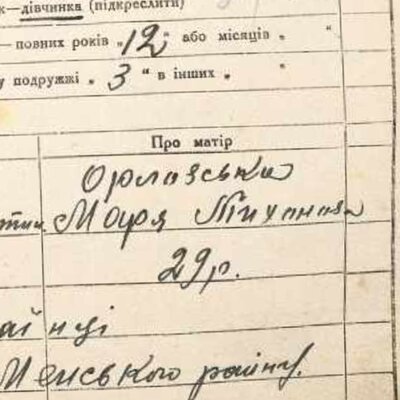 к—дівчинка (підкреслити)
— повних років „ 12 " або місяців „ "
у подружжі „ 3 " в інших „ "
Про матір
Орлазська
Маря Тиханова
29 р.
аїнці
Менського району.